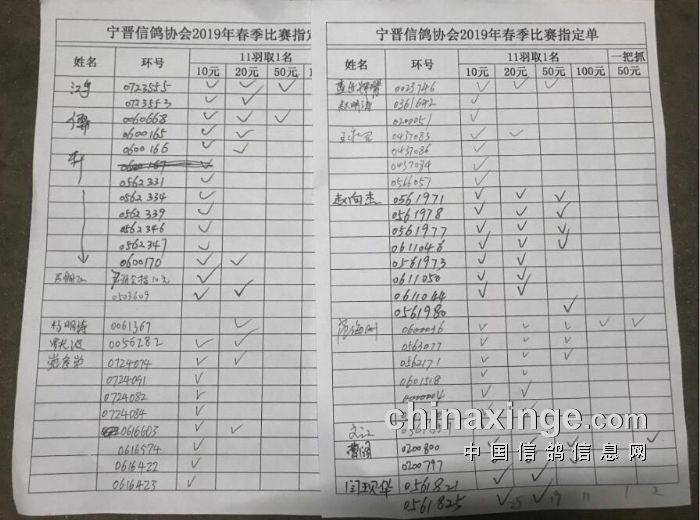 宁晋信鸽协会2019年春季比赛指定
姓名 环号 11羽取1名
10元 20元 50元 1
0723555 ✓ ✓ ✓
0723553 ✓ ✓
0600668 ✓ ✓ ✓
0600165 ✓ ✓
0600166 ✓ ✓
0562331 ✓
0562334 ✓
0562339 ✓
0562346 ✓
0562347 ✓
0600170 ✓ ✓
0503609 ✓ ✓
杨明涛 0061367 ✓
0056282 ✓ ✓
0724074 ✓ ✓
0724091 ✓
0724082 ✓
0724084 ✓
0616603 ✓ ✓
0616574 ✓
0616422 ✓
0616423 ✓
宁晋信鸽协会2019年春季比赛指定单
姓名 环号 11羽取1名 一把抓
10元 20元 50元 100元 50元
0023746 ✓ ✓ ✓
赵明涛 0361642 ✓
0200051 ✓
0437083 ✓ ✓
0437086 ✓
0437084 ✓
0566057 ✓
赵向杰 0561971 ✓ ✓ ✓
0561978 ✓ ✓ ✓
0561977 ✓ ✓ ✓
0611046 ✓ ✓ ✓
0561973 ✓ ✓
0611050 ✓ ✓
0611044 ✓ ✓
0561980 ✓
0600036 ✓ ✓ ✓ ✓ ✓
0563077 ✓ ✓ ✓
0562171 ✓ ✓ ✓
0601518 ✓ ✓ ✓
0000004 ✓ ✓
chinaxinge.com
中国信鸽信息网
0200800
0200797
闫现华 0561821
0561825 25 19 11 1 2